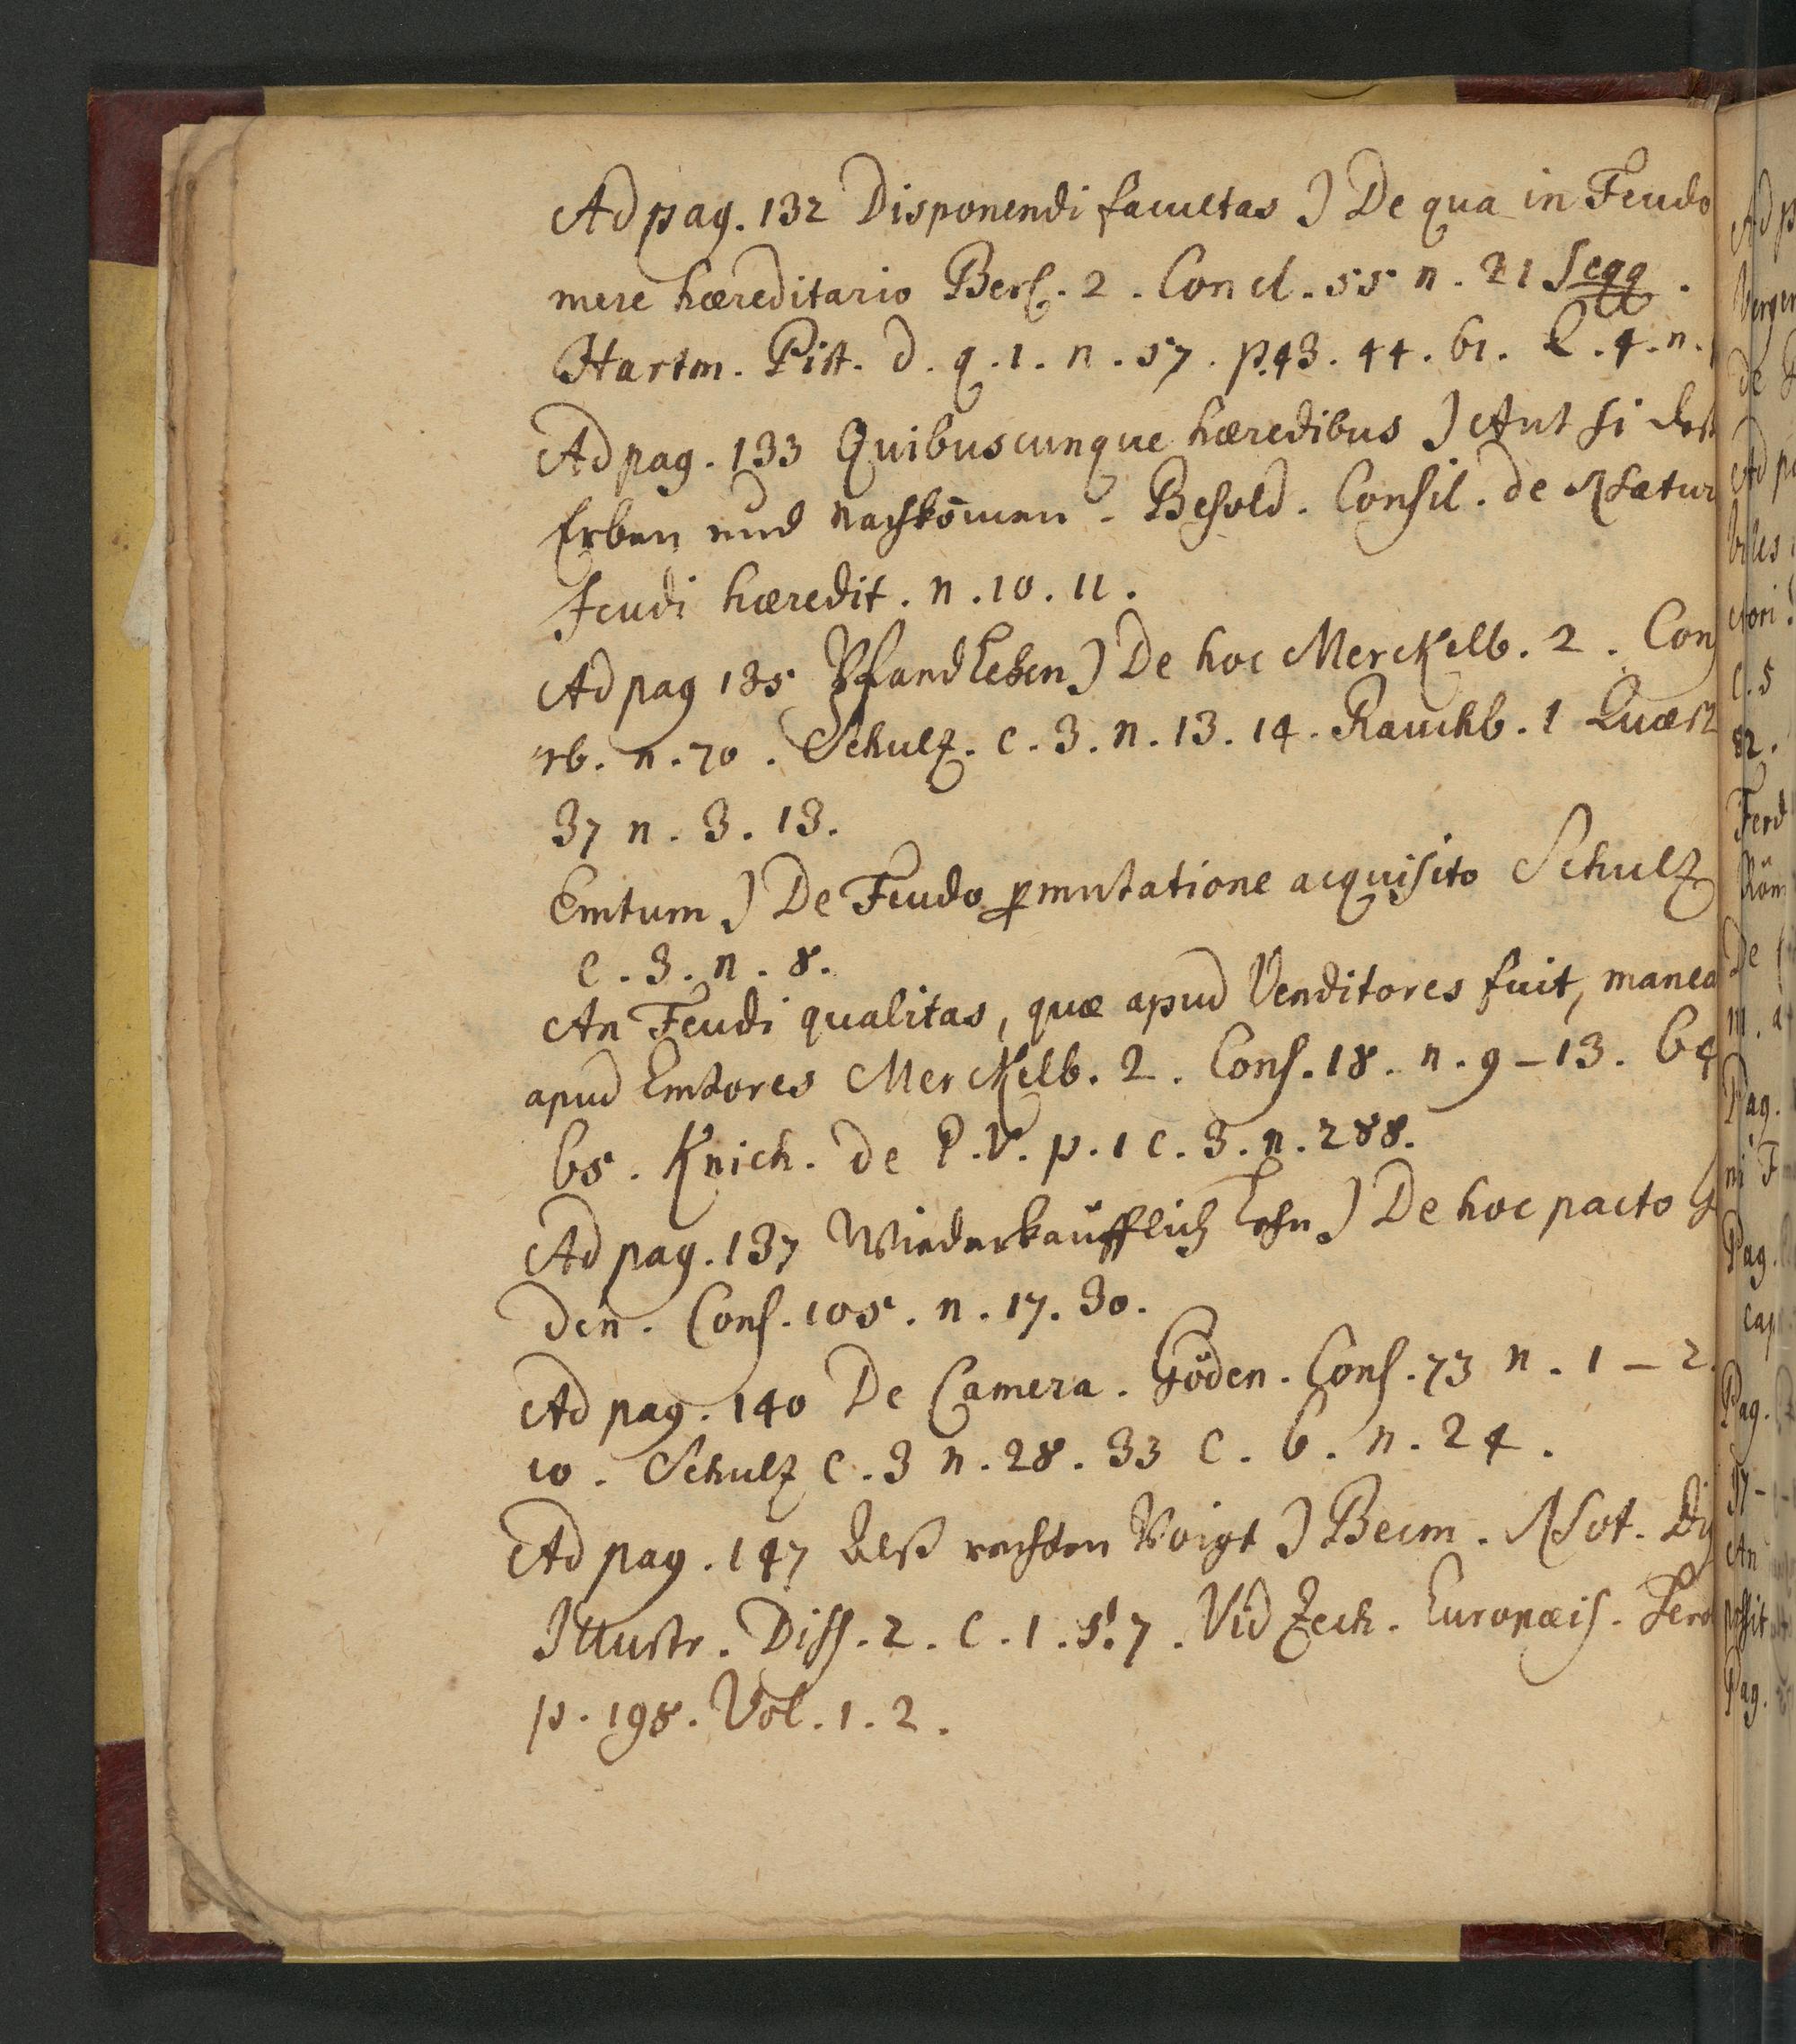 Ad pag. 132 Disponendi facultas) De qua in Feudo
mere hæreditario Berl. 2. Concl. 55 n. 21 seqq.
Hartm. Pist. d. q. 1. n. 57. p. 43. 44. 61. Q. 4. n.
Ad pag. 133 Quibuscunque hæredibus) Aut si
Erben und Nachkom̄en. Besold. Consil. de Natur
Feudi hæredit. n. 10. 11.
Ad pag 135 Pfandlehen) De hoc Merckelb. 2. Con
n. 70. Schulz. c. 3. n. 13. 14. Rauchb. 1 Quæst
37 n. 3. 13.
Emtum) De Feudo ꝑmutatione acquisito Schulz
C. 3. n. 8.
An Feudi qualitas, quæ apud Venditores fuit, manea
apud Emtores Merckelb. 2. Cons. 18. n. 9-13. 64
65. Knich. de P. V. p. 1 c. 3. n. 288.
Ad pag. 137 Wiederkäufflich Lehn) De hoc pacto G
den. Cons. 105. n. 17. 30.
Ad pag. 140 De Camera. Göden. Cons. 73 n. 1-2.
10. Schulz c. 3 n. 28. 33 c. 6. n. 24.
Ad pag. 147 Alß rechten Voigt) Becm. Not. Dig
Illustr. Diss. 2. c. 1. §. 7. Vid Zech. Europæis. Herold
p. 198. Vol. 1. 2.